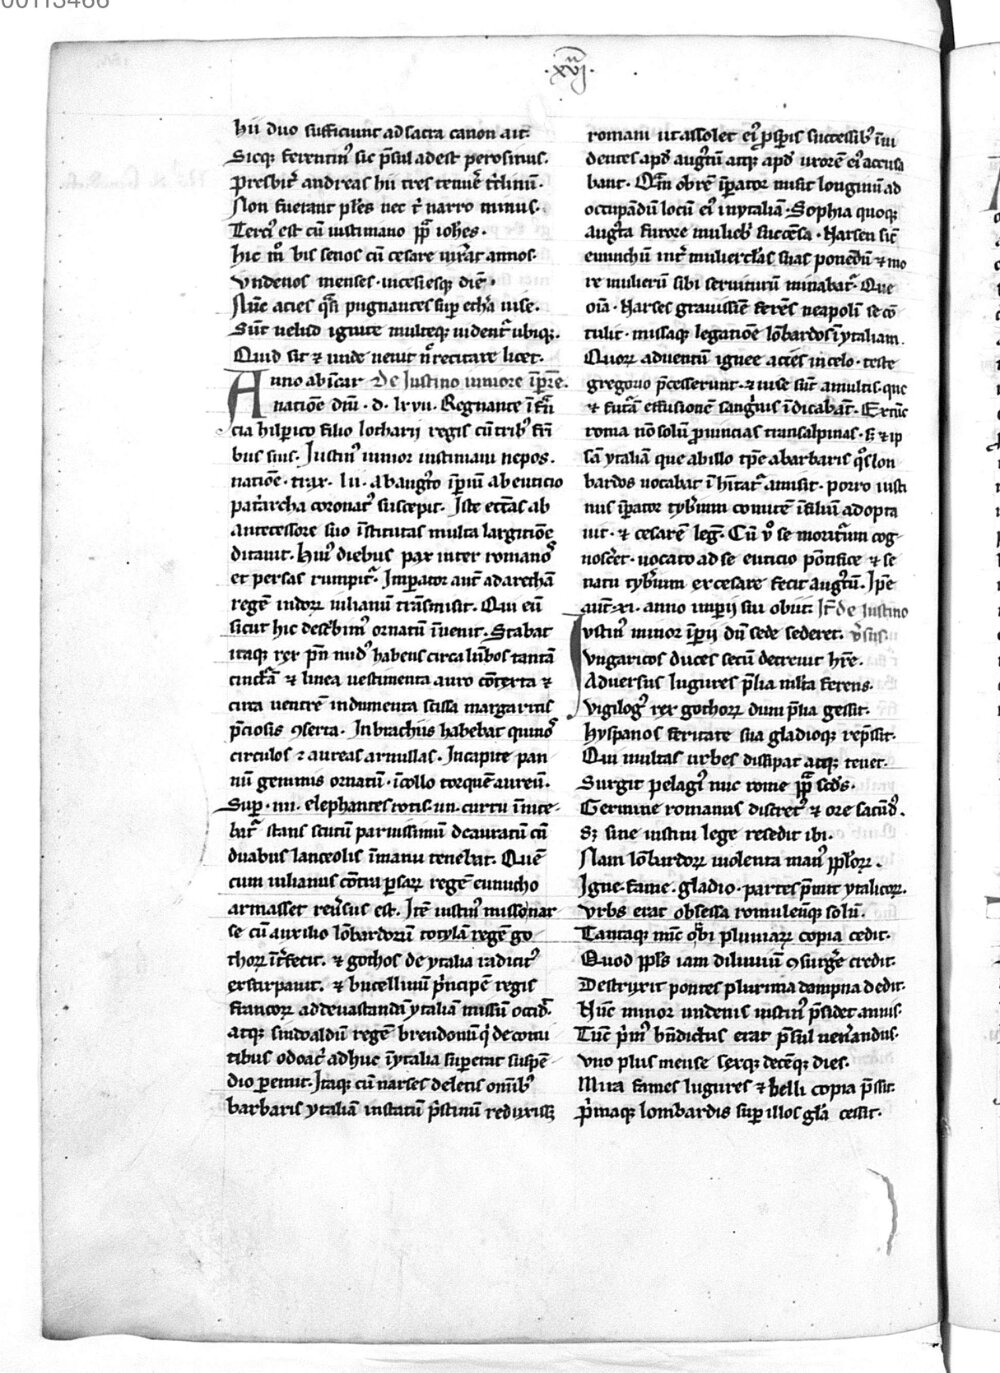 00113466
·xvıȷ·
hii duo sufficiunt ad sacra canon ait.
Sicq; ferentin᷒ sic p̄sul adest perositus.
Presbit̉ andreas hii tres tenuē t̉hnū.
Non fuerant pl̉es nec t̉ narro minus.
Terci᷒ est cū iustiniano pp̄ ioh̄es.
hic m̊ bis senos cū cesare iūrāt annos.
Vndenos menses. uicesiesq; diē.
Nūc acies q̄si pugnantes sup̱ ethā uise.
Sūt uelud ignite multeq; uident̉ ubiq;.
Quid sit ⁊ unde uenit nr̄ recitare licet.
Anno ab īcar De Iustino iuniore īp̄re.
natiōe dn̄i. d. lxvii. Regnante ī frā
cia hilp̱ico filio lotharii regis cū trib᷒ frī
bus suis. Iustin᷒ iunior iustiniani nepos.
natiōe. trax. lii. ab augꝰto īp̱iū ab euticio
pat̉archa coronat᷒ suscepit. Iste ecc̄as ab
antecessore suo īstitutas multa largitiōe
ditauit. Hui᷒ diebus pax inter romanos
et persas rumpit̉. Imp̱ator aut̄ ad arethā
regē indoꝝ iulianū trāsmisit. Qui eū
sicut hic describim᷒ ornatū īuenit. Stabat
itaq; rex pn̄ nud᷒ habens circa lūbos tantū
cinctā ⁊ linea uestimenta auro cōtexta ⁊
circa uentrē indumenta scissa margaritis
p̄ciosis ꝯserta. In brachiis habebat quinos
circulos ⁊ aureas armillas. In capite pan
nū gemmis ornatū. ī collo torquē aureū.
Sup̱. iiii. elephantes rotis. iiii. curru īnite
bat̉ stans scutū paruissimū deauratū cū
duabus lanceolis ī manu tenebat. Quē
cum iulianus cōtra p̱saꝝ regē eunucho
armasset reūsus est. Itē iustin᷒ misso nar
se cū auxilio lōbardorū totylā regē go
thoꝝ īt̉fecit. ⁊ gothos de ytalia radicit᷒
exstirpauit. ⁊ bucellinū p̉ncipē regis
francoꝝ ad deuastandā ytaliā missū occid̄.
atq; sindoaldū regē brendonū q̉ de comi
tibus odoac̉ adhuc ī ytalia sup̱erat suspē
dio p̱emit. Itaq; cū narses deletis om̄ib᷒
barbaris ytaliā in statū p̉stinū reduxiss;
romani ut assolet ei᷒ p̱sp̱is successib᷒ īui
dentes apd̓ augꝰtū atq; apd̓ uxorē ei᷒ accusa
bant. Quā obrē īp̱ator misit longinū ad
occupandū locū ei᷒ in ytaliā. Sophia quoq;
augꝰta furore mulieb̉ succēsa. Narsen sic
eunuchū int̉ mulierc̄las suas ponendū ⁊ mo
re mulierū sibi seruiturū minabat̉. Que
oīa. Narses grauissīe ferēs neapolī se cō
tulit. missaq; legatiōe lōbardos ī ytaliam.
Quoꝝ aduentū ignee acies in celo. teste
gregorio p̄cesserunt. ⁊ uise sūt a multis. que
⁊ futā effusionē sanḡuis īdicabāt. Ex tūc
roma nō solū p̱uincias transalpinas. s̄ ⁊ ip
sā ytaliā que ab illo tp̄e a barbaris q̊s lon
bardos uocabāt īhītat̉ amisit. porro iusti
nus īp̱ator tyb̉ium comitē ī filiū adopta
uit. ⁊ cesarē leg̉. Cū v̊ se moritūm cog
nosc̉et. uocato ad se euticio pōtifice ⁊ se
natu tyb̉ium ex cesare fecit augꝰtū. Ip̄e
aut̄. xi. anno imp̱ii sui obiit. It̄ de Iustino
Iustin᷒ minor īp̱ii dū sede sederet. v̉sus.
Vngaricos duces secū decreuit hr̄e.
Aduersus lugures p̄lia milia ferens.
Vigilog᷒ rex gothoꝝ dum p̄lia gessit.
Hyspanos feritate sua gladioq; rep̄ssit.
Qui multas urbes dissipat atq; tenet.
Surgit pelagi᷒ nūc rome pp̄ scd̄s.
Germine romanus discret᷒ ⁊ ore facūd᷒.
Sꝫ sine iustini lege resedit ibi.
Nam lōbardoꝝ uiolenta man᷒ pp̱loꝝ.
Igne. fame. gladio. partes p̄mit ytalicoꝝ.
Vrbs erat obsessa romulenq; solū.
Tantaq; nūc orbi pluuiaꝝ copia cedit.
Quod pp̱ls iam diluuiū ꝯsurgē credit.
Destruxit pontes plurima dampna dedit.
Hūc minor undenis iustin᷒ p̄sidet annis.
Tūc p̉m᷒ bn̄dictus erat p̄sul uen̉andus.
Vno plus mense sexq; decēq; dies.
Mira fames lugures ⁊ belli copia p̄ssit.
P̉maq; lombardis sup̱ illos gl̄a cessit.